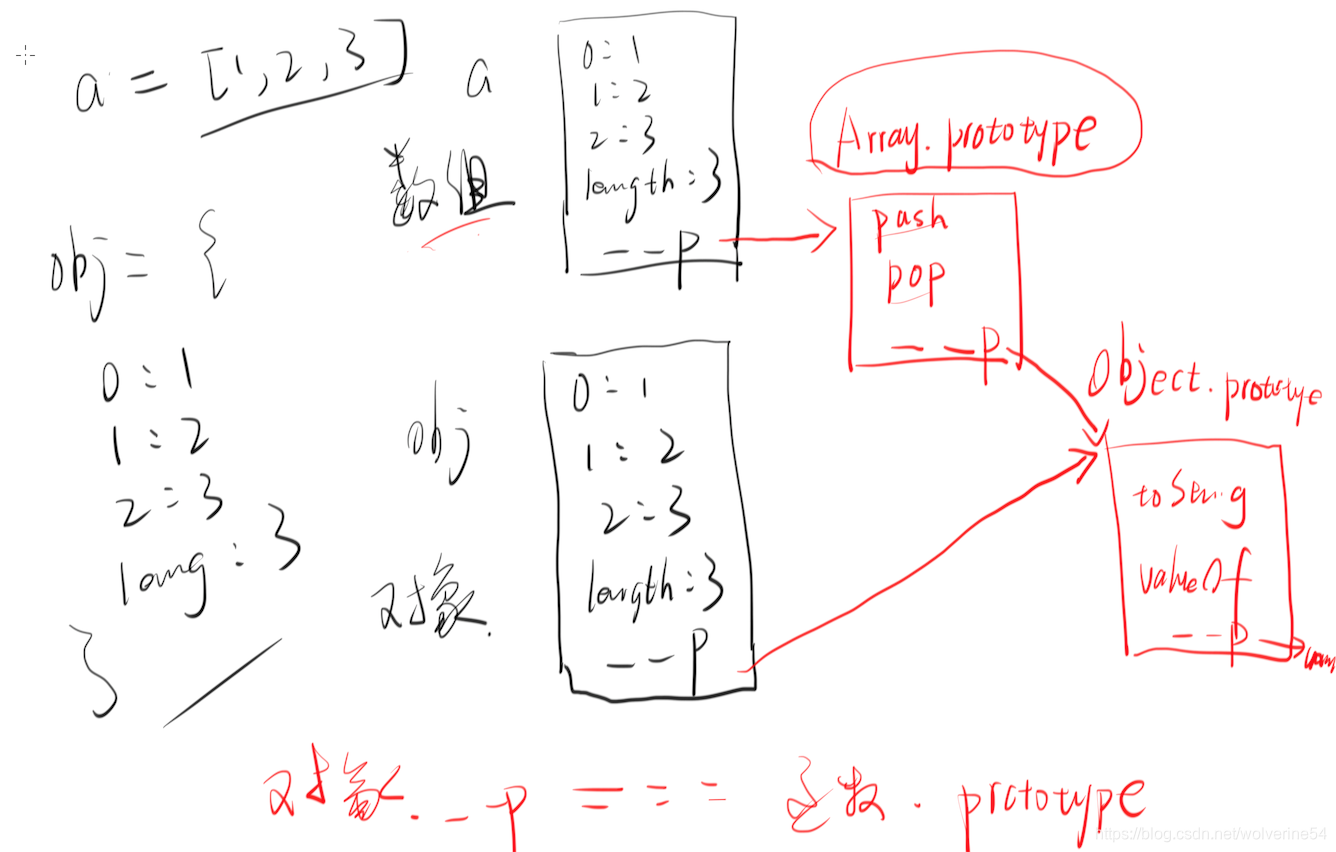 a = [1, 2, 3]
obj = {
0 : 1
1 : 2
2 : 3
: 3
}
a
数组
0 : 1
1 : 2
2 : 3
length : 3
__p
obj
对象
0 : 1
1 : 2
2 : 3
length : 3
__p
Array.prototype
push
pop
__p
Object.prototye
valueOf
__p
对象.__p === 函数.prototype
https://blog.csdn.net/wolverine54